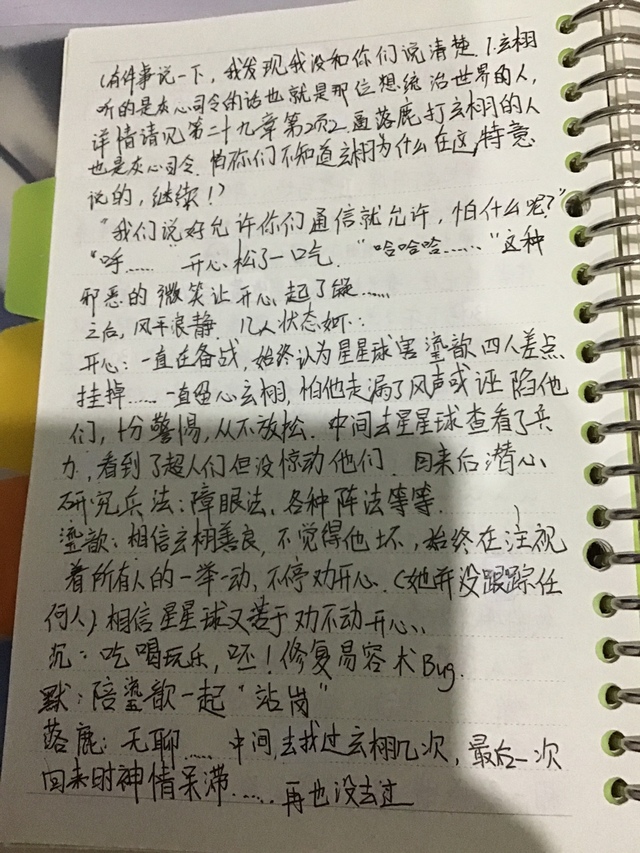 (有件事说一下,我发现我没和你们说清楚 1.玄栩
听的是灰心司令的话也就是那位想统治世界的人,
详情请见第二十九章第2页2.画落鹿打玄栩的人
也是灰心司令.怕你们不知道玄栩为什么在这,特意
说的,继续!)
“我们说好允许你们通信就允许,怕什么呢?”
“呼……”开心松了一口气.“哈哈哈……”这种
邪恶的微笑让开心起了疑……
之后,风平浪静.几人状态如下:
开心:一直在备战,始终认为星星球害鎏歆四人差点
挂掉……一直留心玄栩,怕他走漏了风声或诬陷他
们,十分警惕,从不放松.中间去星星球查看了兵
力,看到了超人们但没惊动他们.回来后潜心
研究兵法:障眼法、各种阵法等等.
鎏歆:相信玄栩善良,不觉得他坏,始终在注视
着所有人的一举一动,不停劝开心.(她并没跟踪任
何人)相信星星球又苦于劝不动开心、
沉:吃喝玩乐,呸!修复易容术Bug.
默:陪鎏歆一起“站岗”
落鹿:无聊……中间去找过玄栩几次,最后一次
回来时神情呆滞……再也没去过